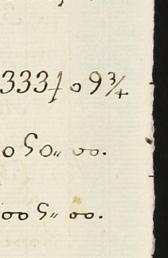 3333⅓ 0 9¾
0 50 ,, 00.
00 5 ,, 00.